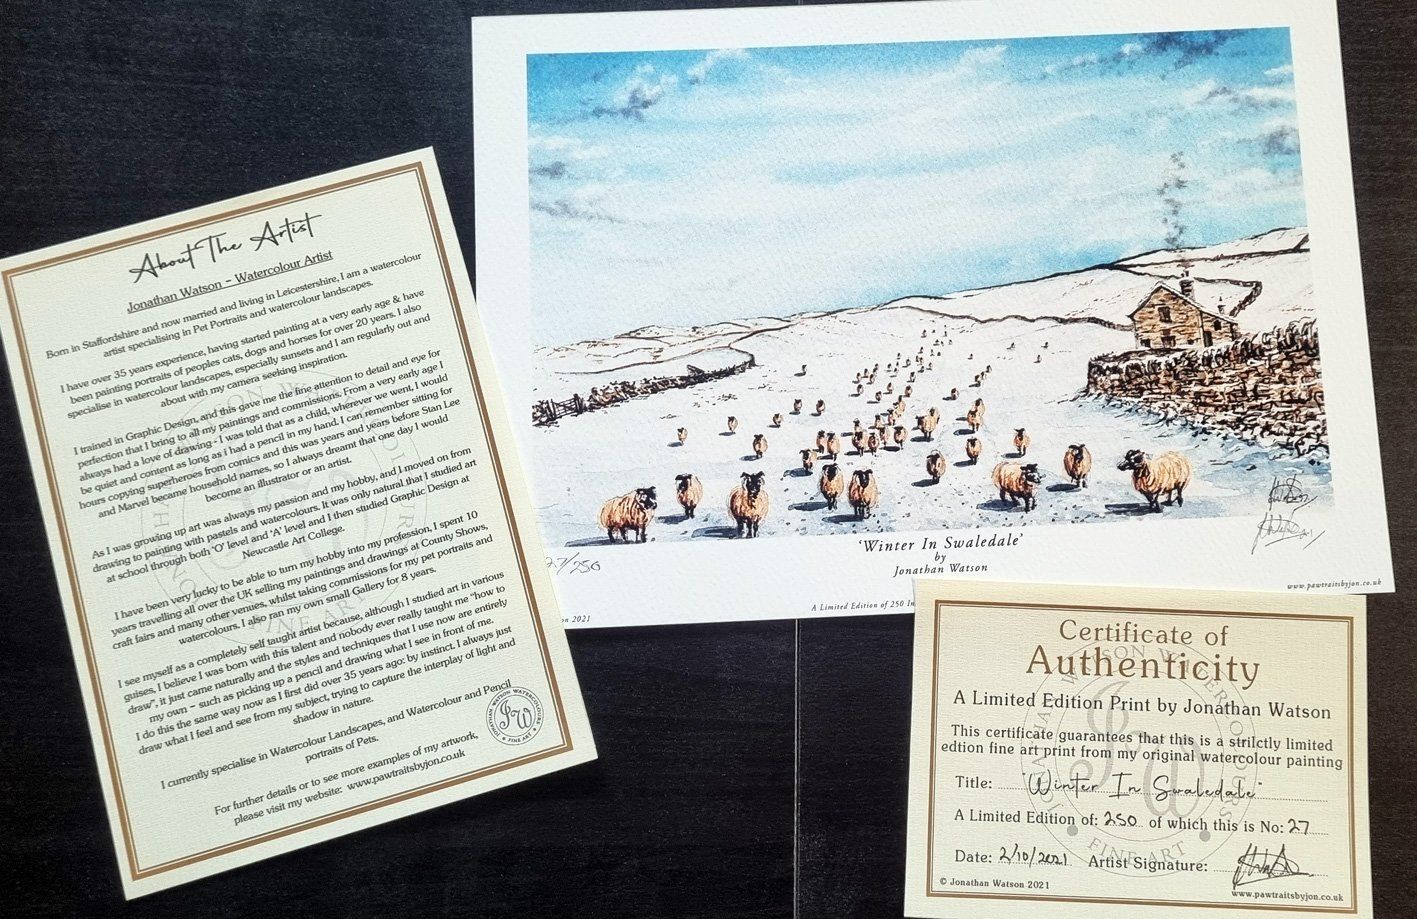 About The Artist
Jonathan Watson - Watercolour Artist
Born in Staffordshire and now married and living in Leicestershire, I am a watercolour
artist specialising in Pet Portraits and watercolour landscapes.
I have over 35 years experience, having started painting at a very early age & have
been painting portraits of peoples cats, dogs and horses for over 20 years. I also
specialise in watercolour landscapes, especially sunsets and I am regularly out and
about with my camera seeking inspiration.
I trained in Graphic Design, and this gave me the fine attention to detail and eye for
perfection that I bring to all my paintings and commissions. From a very early age I
always had a love of drawing - I was told that as a child, wherever we went, I would
be quiet and content as long as i had a pencil in my hand. I can remember sitting for
hours copying superheroes from comics and this was years and years before Stan Lee
and Marvel became household names, so I always dreamt that one day I would
become an illustrator or an artist.
As I was growing up art was always my passion and my hobby, and I moved on from
drawing to painting with pastels and watercolours. It was only natural that I studied art
at school through both 'O' level and 'A' level and I then studied Graphic Design at
Newcastle Art College.
I have been very lucky to be able to turn my hobby into my profession, I spent 10
years travelling all over the UK selling my paintings and drawings at County Shows,
craft fairs and many other venues, whilst taking commissions for my pet portraits and
watercolours. I also ran my own small Gallery for 8 years.
I see myself as a completely self taught artist because, although I studied art in various
guises, I believe I was born with this talent and nobody ever really taught me "how to
draw", it just came naturally and the styles and techniques that I use now are entirely
my own - such as picking up a pencil and drawing what I see in front of me.
I do this the same way now as I first did over 35 years ago: by instinct. I always just
draw what I feel and see from my subject, trying to capture the interplay of light and
shadow in nature.
I currently specialise in Watercolour Landscapes, and Watercolour and Pencil
portraits of Pets.
For further details or to see more examples of my artwork,
please visit my website: www.pawtraitsbyjon.co.uk
JONATHAN WATSON WATERCOLOURS
JW
FINE ART
27/250
'Winter In Swaledale'
by
Jonathan Watson
www.pawtraitsbyjon.co.uk
A Limited Edition of 250
2021
Certificate of
Authenticity
A Limited Edition Print by Jonathan Watson
This certificate guarantees that this is a strilctly limited
edtion fine art print from my original watercolour painting
Title: "Winter In Swaledale"
A Limited Edition of: 250 of which this is No: 27
Date: 2/10/2021 Artist Signature:
© Jonathan Watson 2021
www.pawtraitsbyjon.co.uk